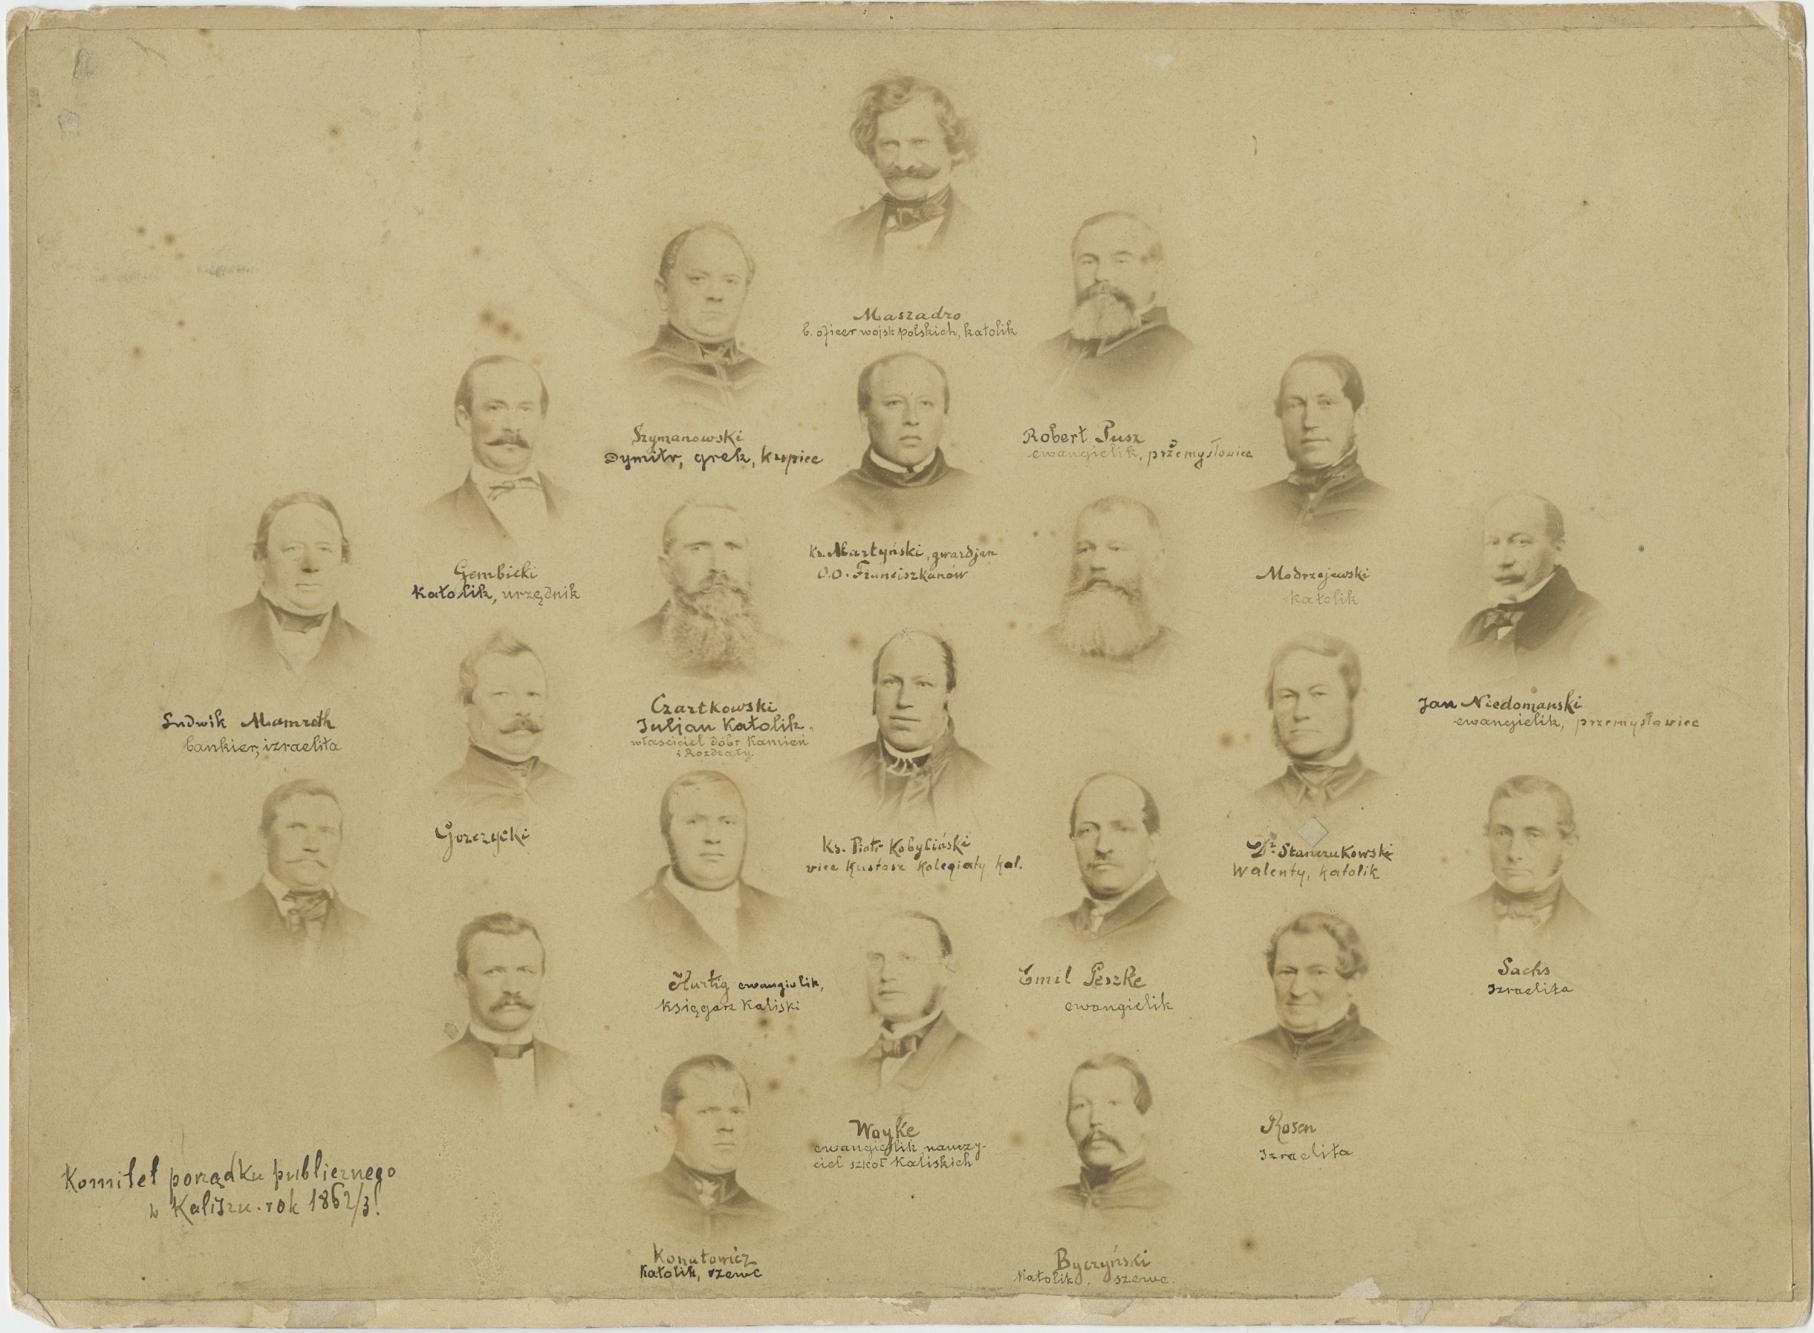 Maszadro
b. oficer wojsk polskich, katolik
Szymanowski
Dymitr, grek, kupiec
Robert Pusz
ewangielik, przemysłowiec
Gembicki
Katolik, urzędnik
Ks. Martyński, gwardjan
O.O. Franciszkanów
Modrzejewski
Katolik
Ludwik Mamroth
bankier, izraelita
Czartkowski
Juljan Katolik.
właściciel dóbr Kamień
i Rozdzały.
Jan Niedomanski
ewangielik, przemysłowiec
Gorczycki
Ks. Piotr Kobyliński
vice Kustosz Kolegiaty Kal.
Dr. Stanczukowski
Walenty, katolik
Hurtig ewangielik,
Księgarz Kaliski
Emil Peszke
ewangielik
Sachs
Izraelita
Woyke
ewangielik nauczy-
ciel szkół Kaliskich
Rosen
Izraelita
Komitet porządku publicznego
w Kaliszu. rok 1862/3!
Konutowicz
Katolik, szewc
Byczyński
Katolik, szewc.